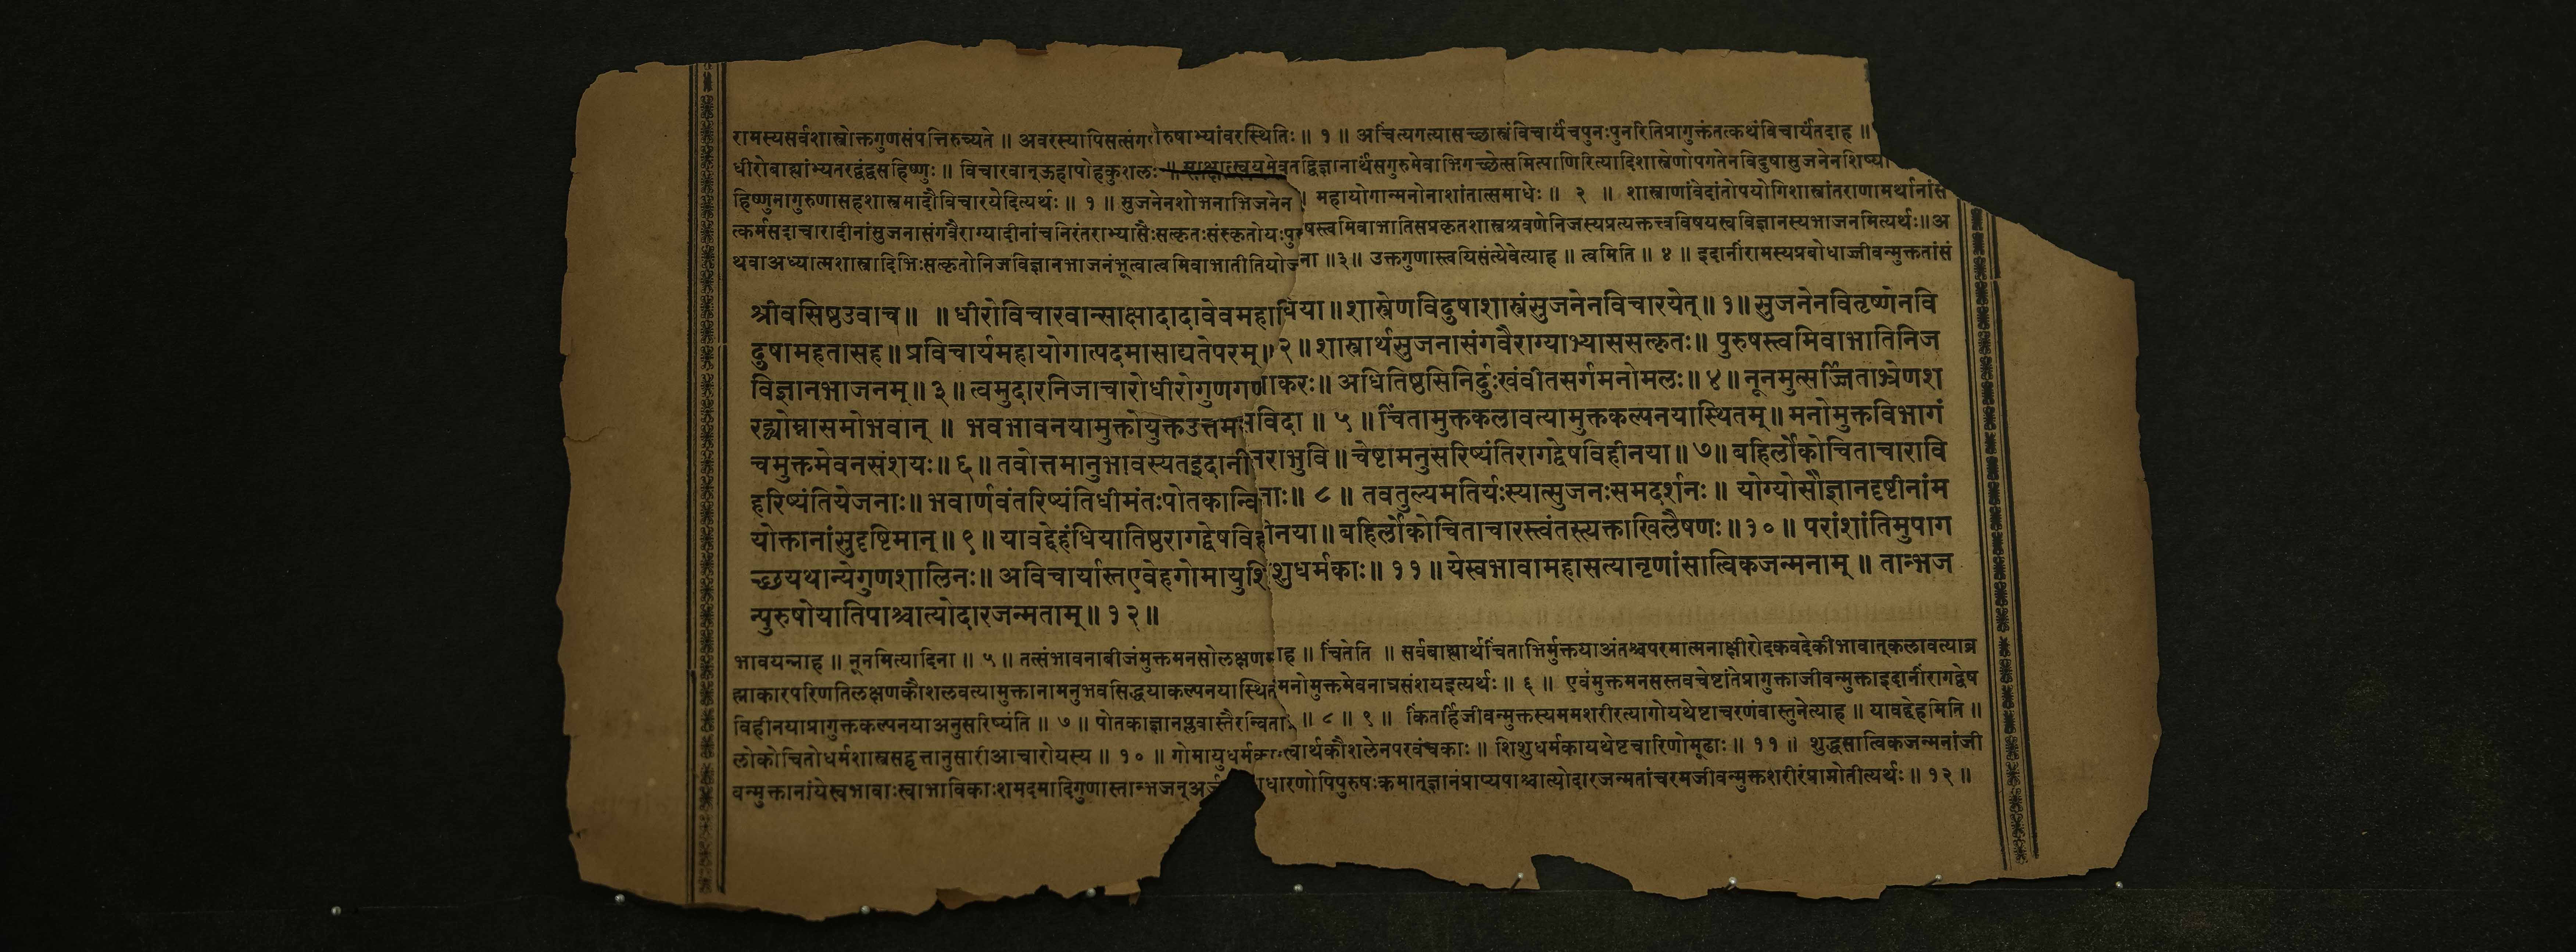 रामस्यसर्वशास्त्रोक्तगुणसंपत्तिरुच्यते ॥ अवरस्यापिसत्संग रुषाभ्यांवरस्थितिः ॥ १ ॥ अचिंत्यगत्यासच्छास्त्रंविचार्यंचपुनःपुनरितिप्रागुक्तंतत्कथंविचार्यंतदाह ॥
धीरोबाह्यांभ्यतरद्वंद्वसहिष्णुः ॥ विचारवान्ऊहापोहकुशलः ॥ साक्षात्स्वयमेवतद्विज्ञानार्थंसगुरुमेवाभिगच्छेत्समित्पाणिरित्यादिशास्त्रेणोपगतेनविदुषासुजनेनशिष्य
हिष्णुनागुरुणासहशास्त्रमादौविचारयेदित्यर्थः ॥ १ ॥ सुजनेनशोभनाभिजनेन । महायोगान्मनोनाशांतात्समाधेः ॥ २ ॥ शास्त्राणांवेदांतोपयोगिशास्त्रांतराणामर्थानांस
त्कर्मसदाचारादीनांसुजनासंगवैराग्यादीनांचनिरंतराभ्यासैःसत्कृतःसंस्कृतोयःपुरुषस्त्वमिवाभातिसप्रकृतशास्त्रश्रवणेनिजस्यप्रत्यक्तत्त्वविषयस्यविज्ञानस्यभाजनमित्यर्थः॥अ
थवाअध्यात्मशास्त्रादिभिःसत्कृतोनिजविज्ञानभाजनंभूत्वात्वमिवाभातीतियोजना ॥३॥ उक्तगुणास्त्वयिसंत्येवेत्याह ॥ त्वमिति ॥ ४ ॥ इदानींरामस्यप्रबोधाज्जीवन्मुक्ततांसं
श्रीवसिष्ठउवाच॥ ॥धीरोविचारवान्साक्षादादावेवमहाधिया॥शास्त्रेणविदुषाशास्त्रंसुजनेनविचारयेत्॥१॥सुजनेनवितृष्णेनवि
दुषामहतासह॥प्रविचार्यमहायोगात्पदमासाद्यतेपरम्॥२॥शास्त्रार्थसुजनासंगवैराग्याभ्याससत्कृतः॥पुरुषस्त्वमिवाभातिनिज
विज्ञानभाजनम्॥३॥त्वमुदारनिजाचारोधीरोगुणगणाकरः॥अधितिष्ठसिनिर्दुःखंवीतसर्गमनोमलः॥४॥नूनमुत्सर्जिताभ्रेणश
रद्व्योम्नासमोभवान् ॥ भवभावनयामुक्तोयुक्तउत्तम विदा ॥ ५ ॥चिंतामुक्तकलावत्यामुक्तकल्पनयास्थितम्॥मनोमुक्तविभागं
चमुक्तमेवनसंशयः॥६॥तवोत्तमानुभावस्यतइदानींनराभुवि॥चेष्टामनुसरिष्यंतिरागद्वेषविहीनया॥७॥बहिर्लोकोचिताचारावि
हरिष्यंतियेजनाः॥भवार्णवंतरिष्यंतिधीमंतःपोतकान्विताः॥ ८ ॥ तवतुल्यमतिर्यःस्यात्सुजनःसमदर्शनः॥ योग्योसौज्ञानदृष्टीनांम
योक्तानांसुदृष्टिमान्॥९॥यावद्देहंधियातिष्ठरागद्वेषविहीनया॥बहिर्लोकोचिताचारस्त्वंतस्त्यक्ताखिलैषणः॥१०॥ परांशांतिमुपाग
च्छयथान्येगुणशालिनः॥अविचार्यास्तएवेहगोमायुशिशुधर्मकाः॥११॥येस्वभावामहासत्यानृणांसात्विकजन्मनाम्॥ तान्भज
न्पुरुषोयातिपाश्चात्योदारजन्मताम्॥१२॥
भावयन्नाह ॥ नूनमित्यादिना ॥ ५ ॥ तत्संभावनाबीजंमुक्तमनसोलक्षणमाह ॥ चिंतेति ॥ सर्वबाह्यार्थचिंताभिर्मुक्तयाअंतश्चपरमात्मनाक्षीरोदकवदेकीभावात्कलावत्याब्र
ह्माकारपरिणतिलक्षणकौशलवत्यामुक्तानामनुभवसिद्धयाकल्पनयास्थितंमनोमुक्तमेवनात्रसंशयइत्यर्थः ॥ ६ ॥ एवंमुक्तमनसस्तवचेष्टांतेप्रागुक्ताजीवन्मुक्ताइदानींरागद्वेष
विहीनयाप्रागुक्तकल्पनयाअनुसरिष्यंति ॥ ७ ॥ पोतकाज्ञानप्लवास्तैरन्विताः ॥ ८ ॥ ९ ॥ किंतर्हिजीवन्मुक्तस्यममशरीरत्यागोयथेष्टाचरणंवास्तुनेत्याह ॥ यावद्देहमिति ॥
लोकोचितोधर्मशास्त्रसद्वृत्तानुसारीआचारोयस्य ॥ १० ॥ गोमायुधर्मकाःस्वार्थकौशलेनपरवंचकाः ॥ शिशुधर्मकायथेष्टचारिणोमूढाः ॥ ११ ॥ शुद्धसात्विकजन्मनांजी
वन्मुक्तानांयेस्वभावाःस्वाभाविकाःशमदमादिगुणास्तान्भजन्अर्ज धारणोपिपुरुषःक्रमात्ज्ञानंप्राप्यपाश्चात्योदारजन्मतांचरमजीवन्मुक्तशरीरंप्राप्नोतीत्यर्थः ॥ १२ ॥